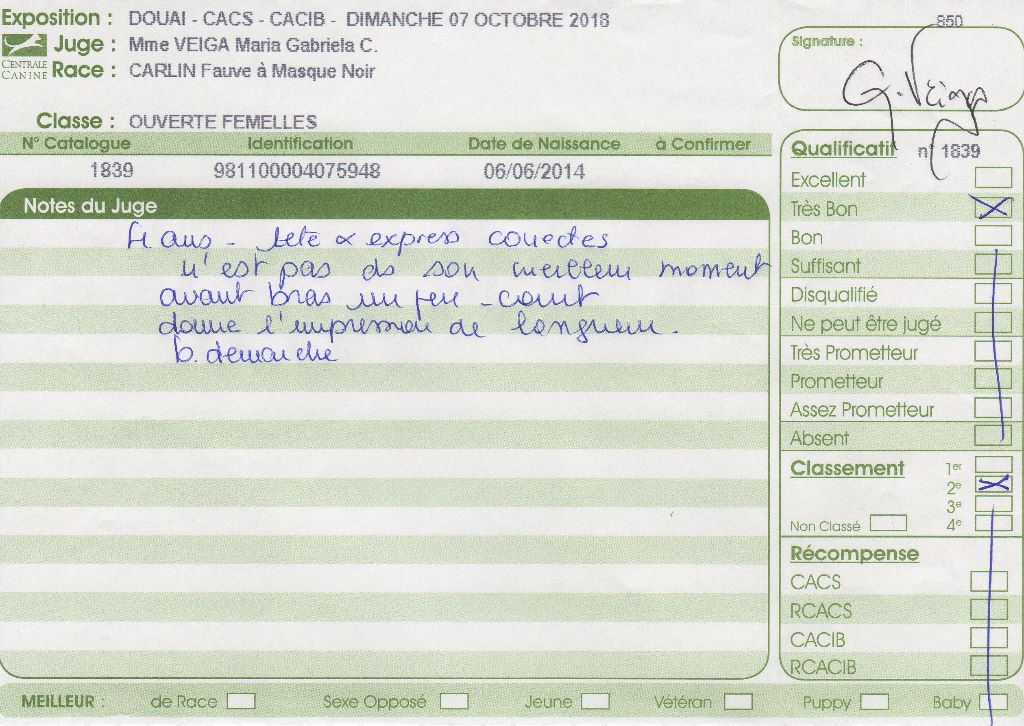 Exposition : DOUAI - CACS - CACIB - DIMANCHE 07 OCTOBRE 2018
850
CENTRALE CANINE
Juge : Mme VEIGA Maria Gabriela C.
Signature :
G. Veiga
Race : CARLIN Fauve à Masque Noir
Classe : OUVERTE FEMELLES
N° Catalogue Identification Date de Naissance à Confirmer
1839 981100004075948 06/06/2014
Notes du Juge
4 ans - tete & express correctes
n'est pas ds son meilleur moment
avant bras un peu - court
donne l'impression de longueur.
b. demarche
Qualificatif n° 1839
Excellent
Très Bon
Bon
Suffisant
Disqualifié
Ne peut être jugé
Très Prometteur
Prometteur
Assez Prometteur
Absent
Classement 1er
2e
3e
Non Classé 4e
Récompense
CACS
RCACS
CACIB
RCACIB
MEILLEUR : de Race Sexe Opposé Jeune Vétéran Puppy Baby